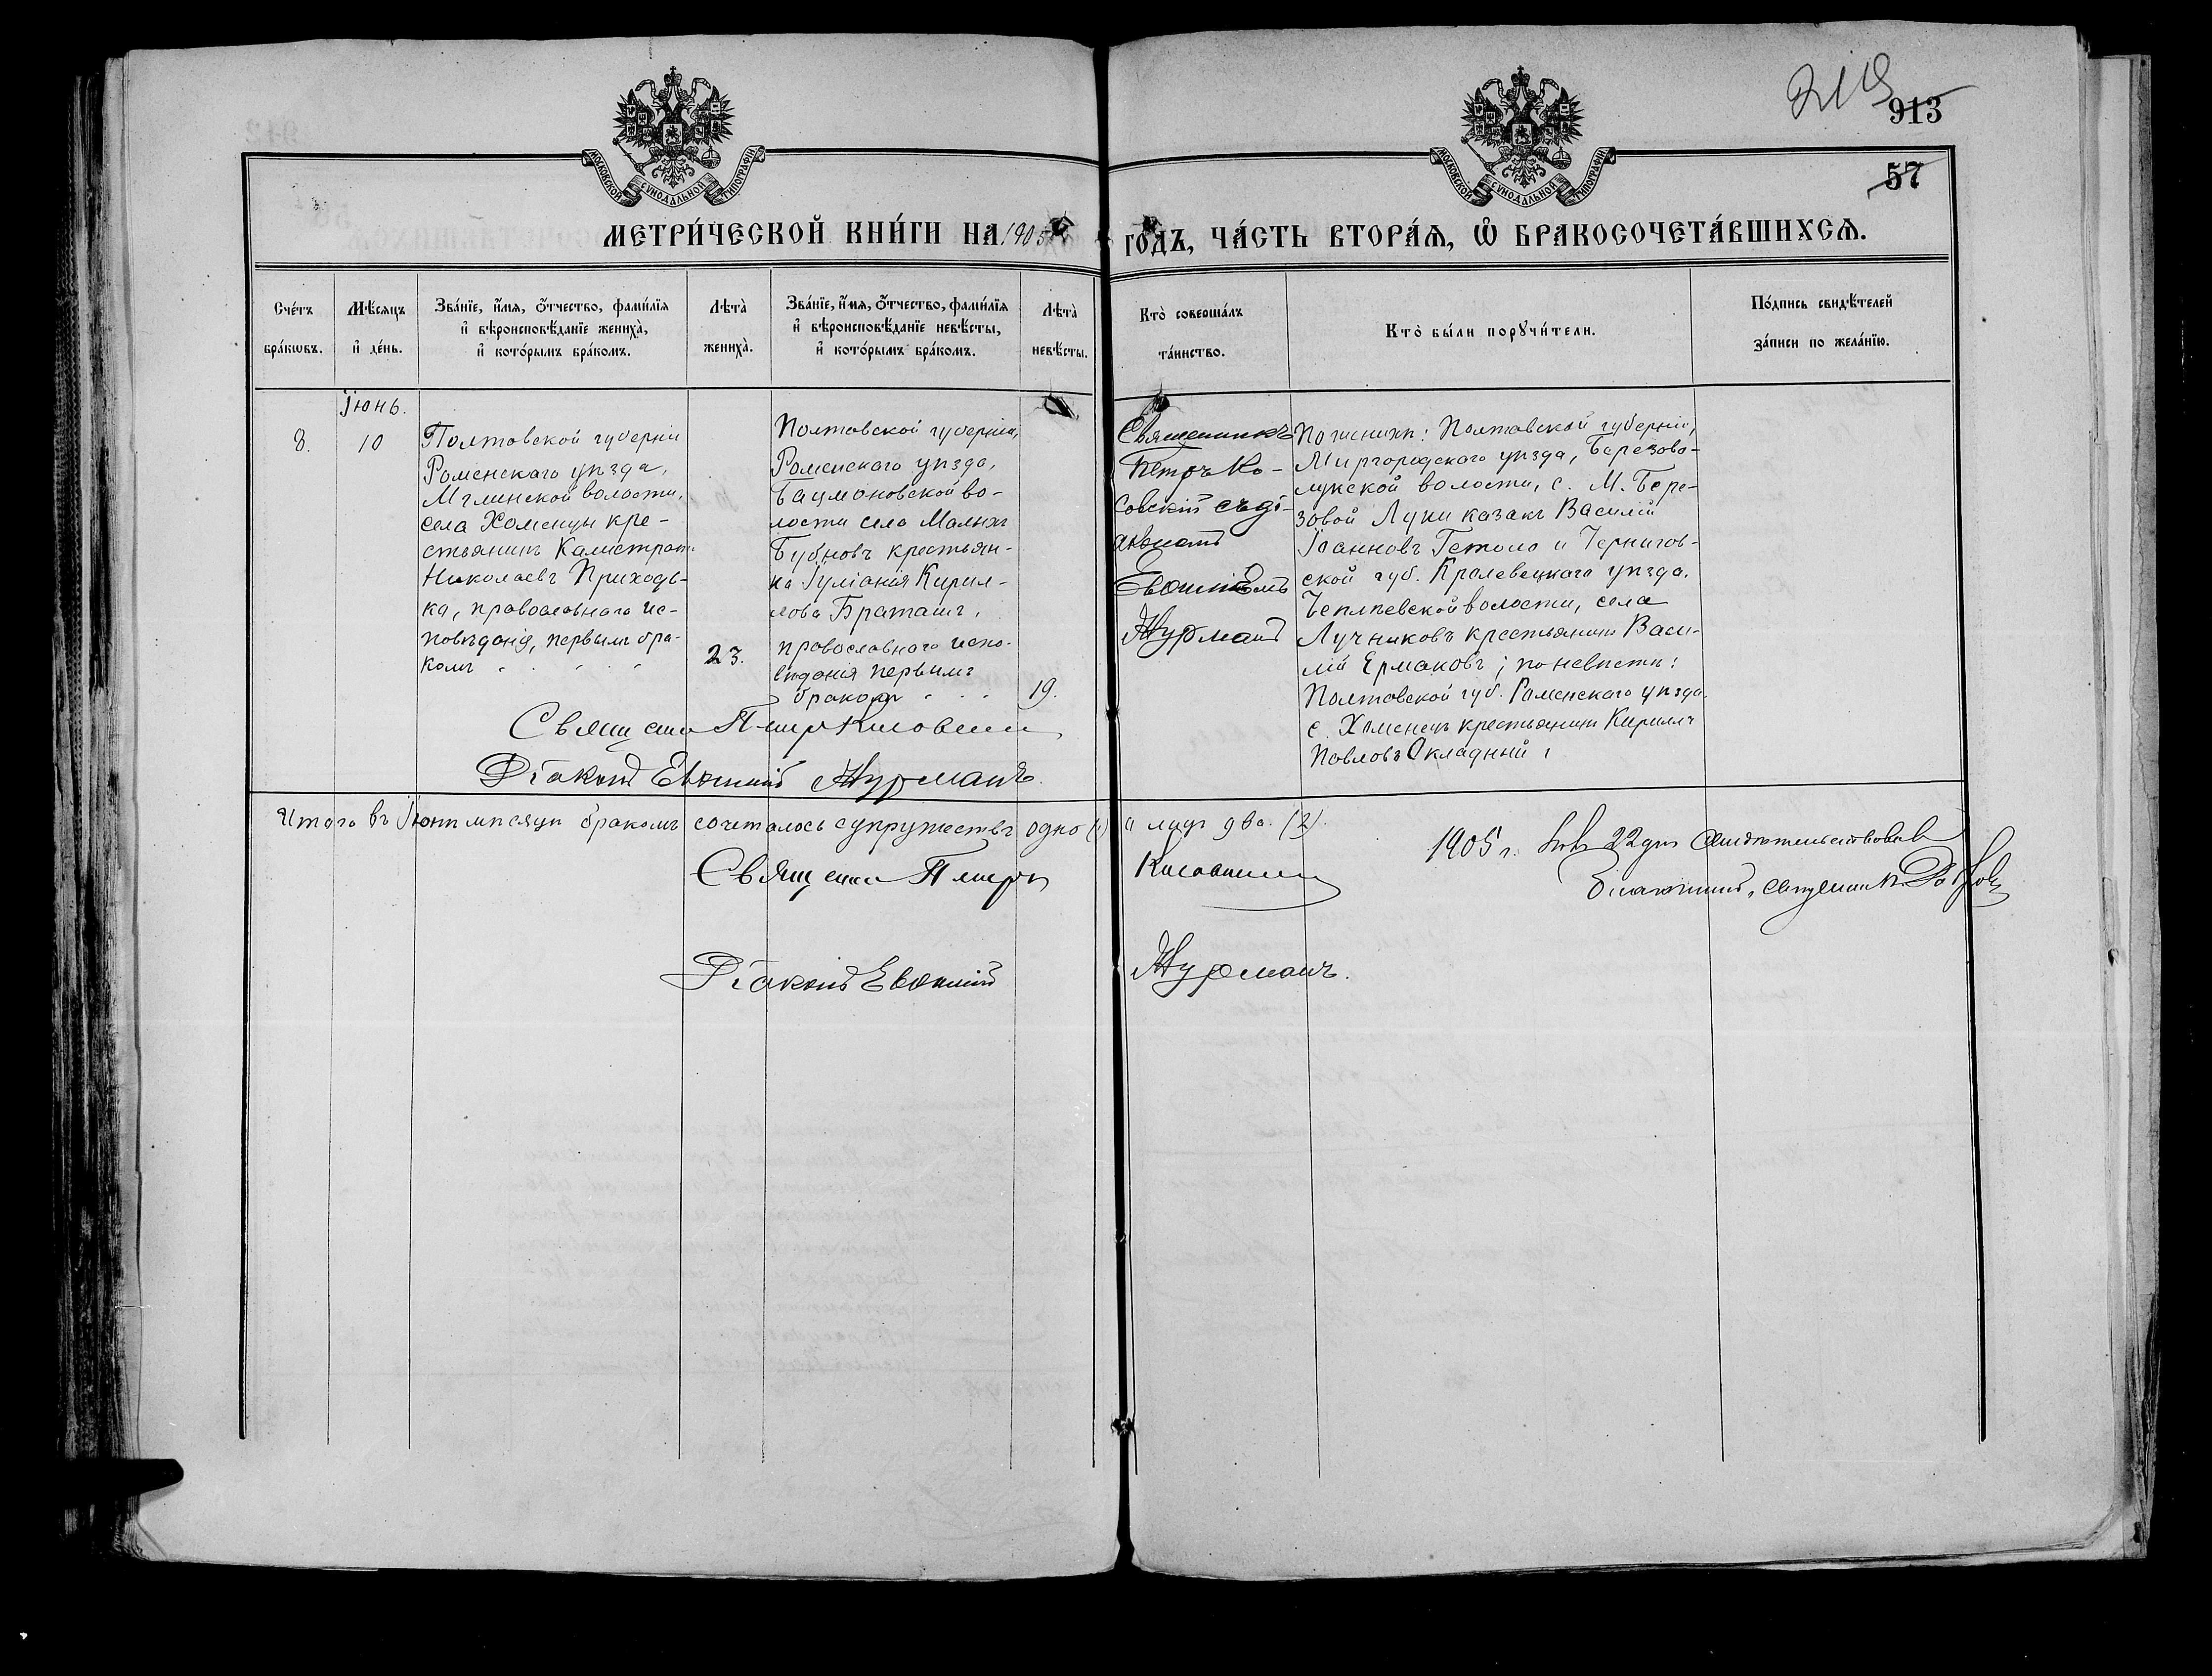 913
57
МОСКОВСКОЙ СѴНОДАЛЬНОЙ ТИПОГРАФІИ
МОСКОВСКОЙ СѴНОДАЛЬНОЙ ТИПОГРАФІИ
МЕТРИ́ЧЕСКОЙ КНИ́ГИ НА 1905 ГО́ДЪ, ЧА́СТЬ ВТОРА́Ѧ, Ѡ҆ БРАКОСОЧЕТА́ВШИХСѦ.
Сче́тъ
бра́кѡвъ.
Мѣ́сѧцъ
и҆ де́нь.
Зва́нїе, и҆́мѧ, ѻ҆́тчество, фами́лїѧ
и҆ вѣроисповѣ́данїе жениха̀,
и҆ кото́рымъ бра́комъ.
Лѣта̀
жениха̀.
Зва́нїе, и҆́мѧ, ѻ҆́тчество, фами́лїѧ
и҆ вѣроисповѣ́данїе невѣ́сты,
и҆ кото́рымъ бра́комъ.
Лѣта̀
невѣ́сты.
Кто̀ соверша́лъ
та́инство.
Кто̀ бы́ли порꙋчи́тели.
По́дпись свидѣ́телей
за́писи по жела́нїю.
Іюнь.
8.
10
Полтавской губерніи
Роменскаго уѣзда,
Мглинской волости,
села Хоменцы кре-
стьянинъ Калистратъ
Николаевъ Приходь-
ка, православнаго ис-
повѣданія, первымъ бра-
комъ
23.
Полтавской губерніи,
Роменскаго уѣзда,
Бацмановской во-
лости села Малыхъ
Бубновъ крестьян-
ка Іуліанія Кирил-
лова Браташъ,
православнаго испо-
вѣданія первымъ
бракомъ
19.
Священникъ
Петръ Ко-
совскій съ ді-
акономъ
Евфиміемъ
Журманъ
По женихѣ: Полтавской губерніи,
Миргородскаго уѣзда, Березово-
лукской волости, с. М. Бере-
зовой Луки казакъ Василій
Іоанновъ Гетало и Чернигов-
ской губ. Кролевецкаго уѣзда,
Чеплѣевской волости, села
Лучниковъ крестьянинъ Васи-
лій Ермаковъ; по невѣстѣ:
Полтавской губ. Роменскаго уѣзда
с. Хоменецъ крестьянинъ Кириллъ
Павловъ Окладный.
Священникъ Петръ Косовскій
Діаконъ Евфимій Журманъ.
Итого въ Іюнѣ мѣсяцѣ бракомъ сочеталось супружествъ одно (1) а лицъ два. (2).
Священникъ Петръ Косовскій
1905 г. 22 дня свидѣтельствовалъ
Благочинный, священникъ
Діаконъ Евфимій Журманъ.